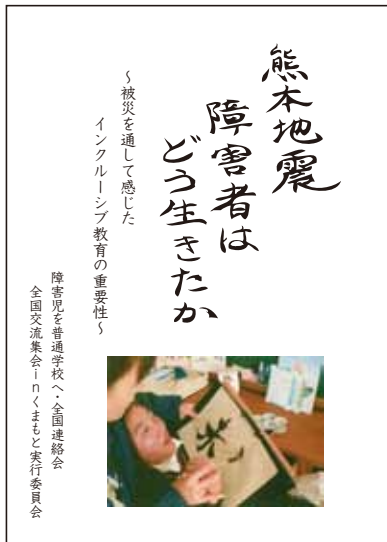 熊本地震
障害者は
どう生きたか
～被災を通して感じた
インクルーシブ教育の重要性～
障害児を普通学校へ・全国連絡会
全国交流集会inくまもと実行委員会